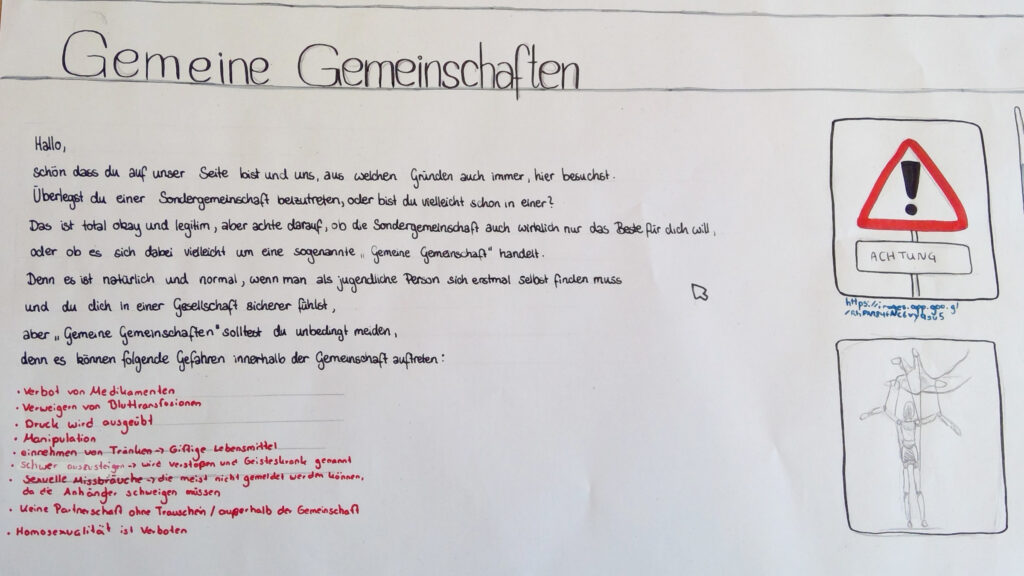 Gemeine Gemeinschaften
Hallo,
schön dass du auf unser Seite bist und uns, aus welchen Gründen auch immer, hier besuchst.
Überlegst du einer Sondergemeinschaft beizutreten, oder bist du vielleicht schon in einer?
Das ist total okay und legitim, aber achte darauf, ob die Sondergemeinschaft auch wirklich nur das Beste für dich will,
oder ob es sich dabei vielleicht um eine sogenannte „Gemeine Gemeinschaft" handelt.
Denn es ist natürlich und normal, wenn man als jugendliche Person sich erstmal selbst finden muss
und du dich in einer Gesellschaft sicherer fühlst,
aber „Gemeine Gemeinschaften" solltest du unbedingt meiden,
denn es können folgende Gefahren innerhalb der Gemeinschaft auftreten:
• Verbot von Medikamenten
• Verweigern von Bluttransfusionen
• Druck wird ausgeübt
• Manipulation
• einnehmen von Tränken → Giftige Lebensmittel
• schwer auszusteigen → wird verstoßen und Geisteskrank genannt
• Sexuelle Missbräuche → die meist nicht gemeldet werden können,
da die Anhänger schweigen müssen
• Keine Partnerschaft ohne Trauschein / außerhalb der Gemeinschaft
• Homosexualität ist Verboten
ACHTUNG
https://images.app.goo.gl